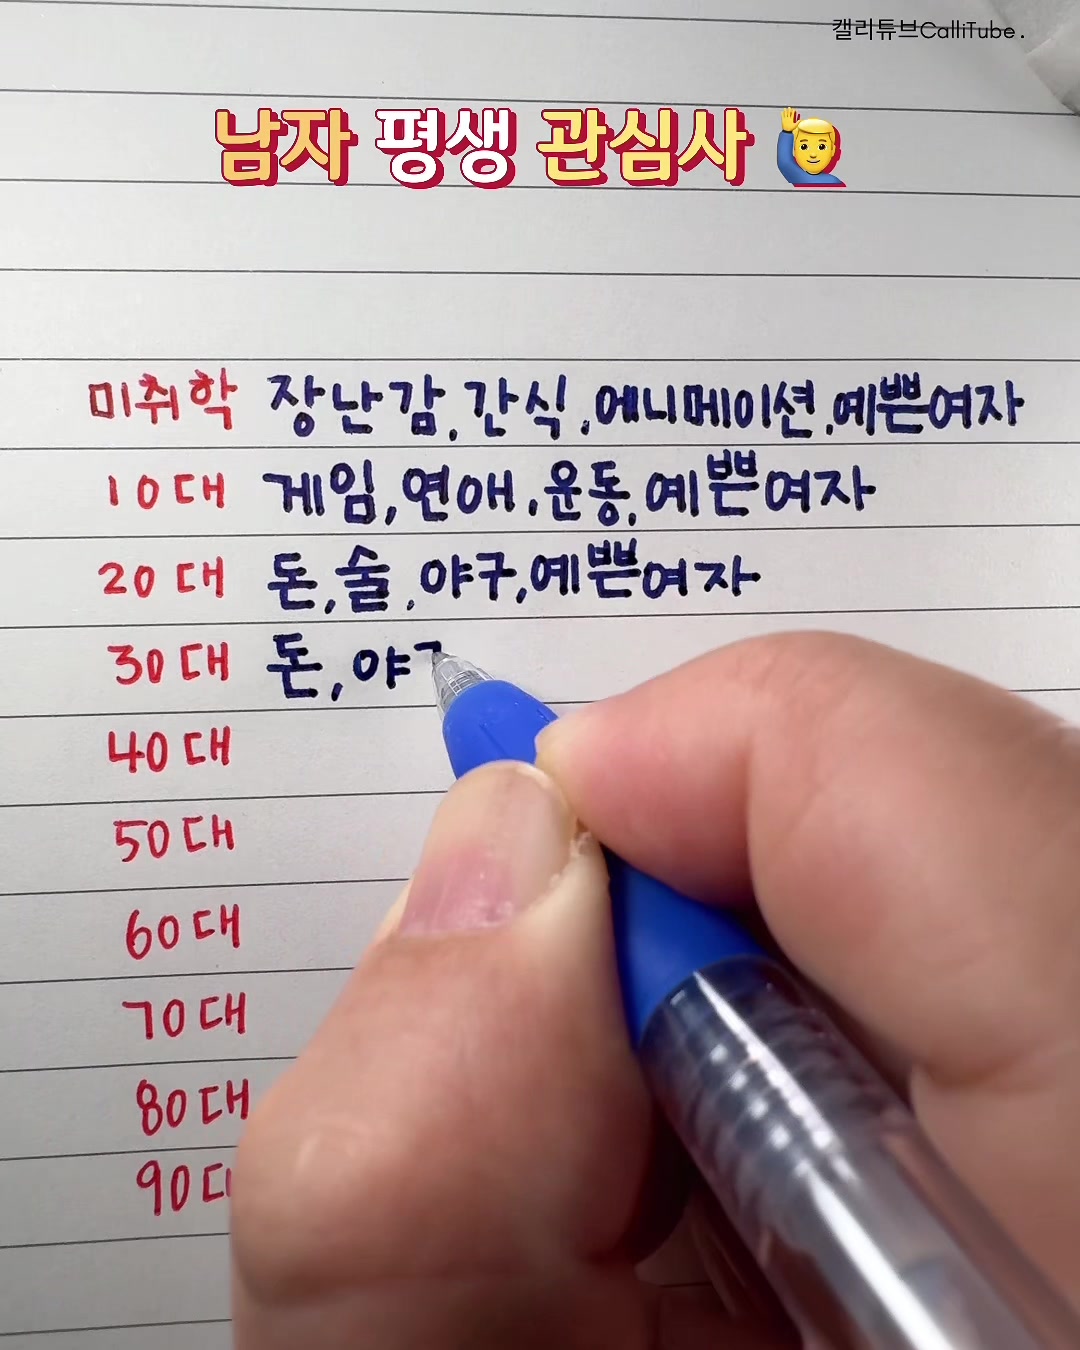 캘리튜브CalliTube.
남자 평생 관심사
미취학 장난감, 간식, 에니메이션, 예쁜여자
10대 게임, 연애, 운동, 예쁜여자
20대 돈, 술, 야구, 예쁜여자
30대 돈, 야
40대
50대
60대
70대
80대
90